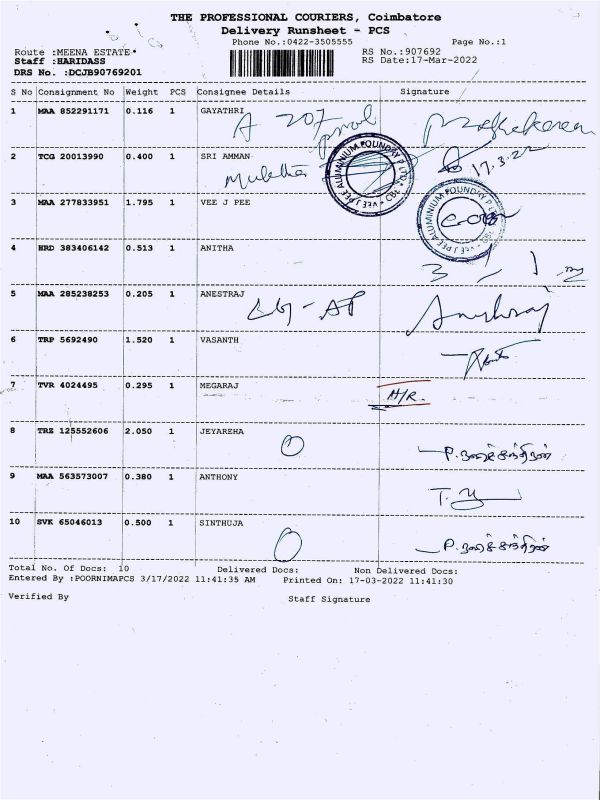 THE PROFESSIONAL COURIERS, Coimbatore
Delivery Runsheet - PCS
Phone No.:0422-3505555 Page No.:1
Route :MEENA ESTATE RS No.:907692
Staff :HARIDASS RS Date:17-Mar-2022
DRS No. :DCJB90769201
S No Consignment No Weight PCS Consignee Details Signature
1 MAA 852291171 0.116 1 GAYATHRI
A 207
2 TCG 20013990 0.400 1 SRI AMMAN
17.3.22
VEE J PEE ALUMINIUM FOUNDRY P LTD CBE
3 MAA 277833951 1.795 1 VEE J PEE
VEE J PEE ALUMINIUM FOUNDRY P LTD CBE
4 HRD 383406142 0.513 1 ANITHA
5 MAA 285238253 0.205 1 ANESTRAJ
6 TRP 5692490 1.520 1 VASANTH
7 TVR 4024495 0.295 1 MEGARAJ H/R.
8 TRZ 125552606 2.050 1 JEYAREHA
9 MAA 563573007 0.380 1 ANTHONY
10 SVK 65046013 0.500 1 SINTHUJA
Total No. Of Docs: 10 Delivered Docs: Non Delivered Docs:
Entered By :POORNIMAPCS 3/17/2022 11:41:35 AM Printed On: 17-03-2022 11:41:30
Verified By Staff Signature